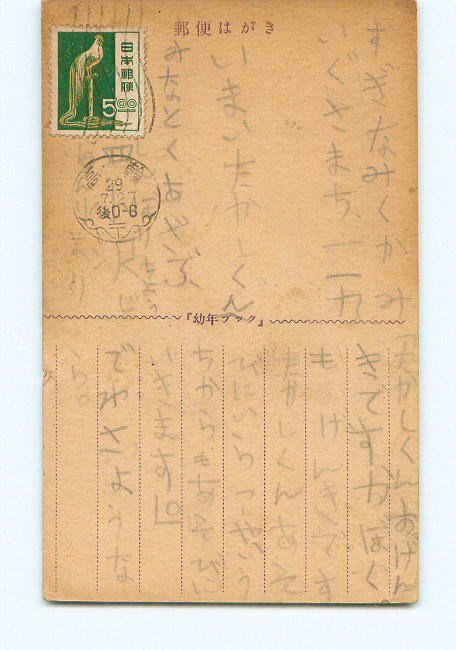 郵便はがき
日本郵便
5.00
高輪
29
7.27
後0-6
すぎなみくかみ
いぐさまち、一一九
いまいたかしくん
みなとくあざぶ、
『幼年ブック』
「たかしくんおげん
きですかぼく
もげんきです
たかしくんあそ
びにいらっしやいう
ちからもあそびに
いきます」。
でわさような
ら。